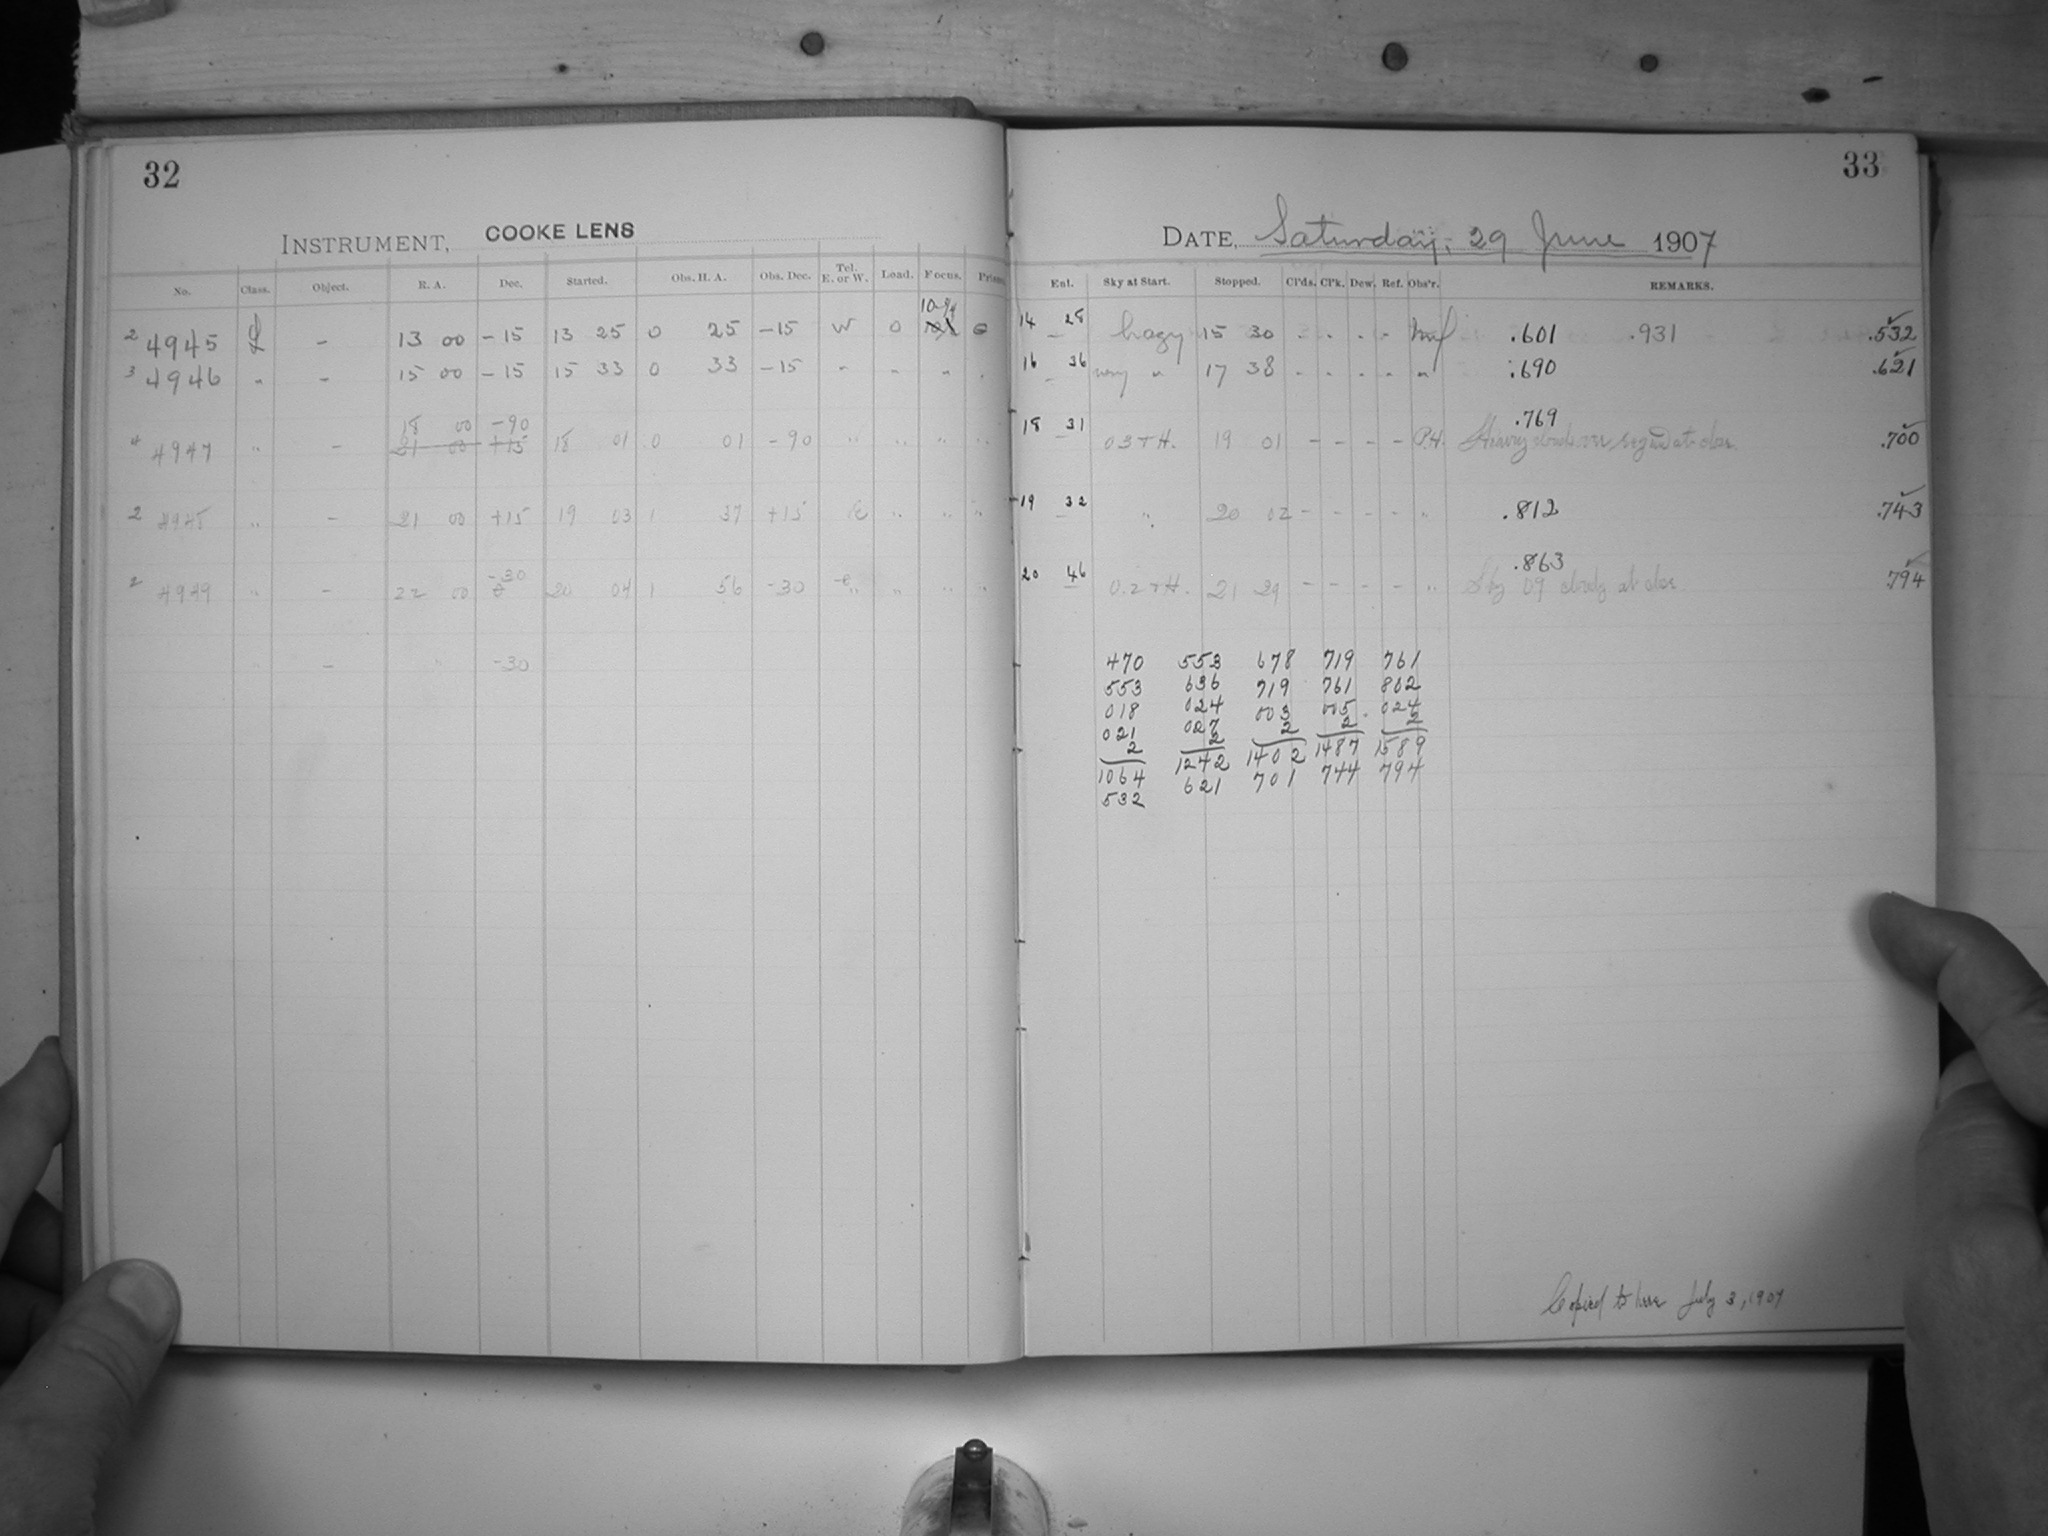 32
INSTRUMENT, COOKE LENS
No. Class. Object. R. A. Dec. Started. Obs. H. A. Obs. Dec. Tel. E. or W. Load. Focus.
2 4945 - 13 00 -15 13 25 0 25 -15 W 0
3 4946 " - 15 00 -15 15 33 0 33 -15 " " " "
18 00 -90
4 4947 " - 21 00 +15 18 01 0 01 -90 " " " "
2 " - 21 00 +15 19 03 1 37 +15 E " " "
-30
2 4949 " - 22 00 20 04 1 56 -30 " " " "
" - " -30
33
DATE, Saturday, 29 June 1907
Sky at Start. Stopped. Cl'ds. Cl'k. Dew. Ref. Obs'r. REMARKS.
14 28 hazy 15 30 - - - - .601 .931 .532
16 36 very " 17 38 - - - - " .690 .621
.769
18 31 19 01 - - - - P.H. Heavy clouds over region at close .700
19 32 " 20 02 - - - - " .812 .743
.863
20 46 21 29 - - - - " Sky 09 cloudy at close 794
470 553 678 719 761
553 636 719 761 802
018 024 003 005 024
021 027 2 2 2
2 2 1402 1487 1589
1064 1242 701 744 794
532 621
Copied to here July 3, 1907